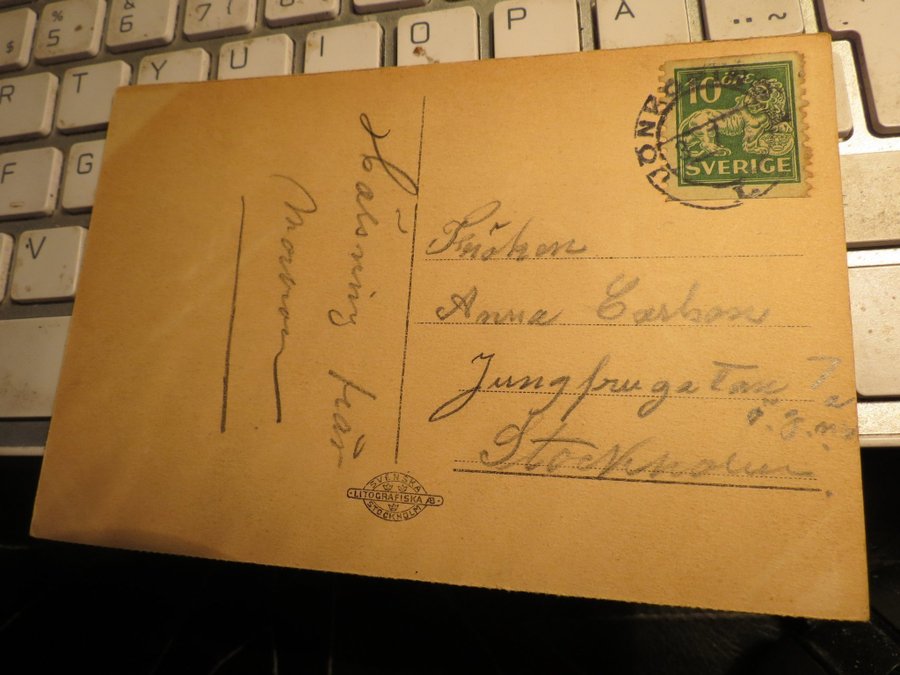 $ 5 & 7 ( ) =
% 6 / 8 9 0
R T Y U I O P Å ~
F G
V
10 ÖRE
SVERIGE
JÖNK
Hälsning från
Fröken
Anna Carlson
Jungfrugatan 7
Stockholm
SVENSKA
LITOGRAFISKA AB
STOCKHOLM